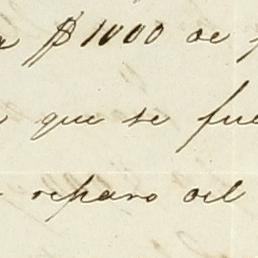 $1000 de
que se fue
reparo del